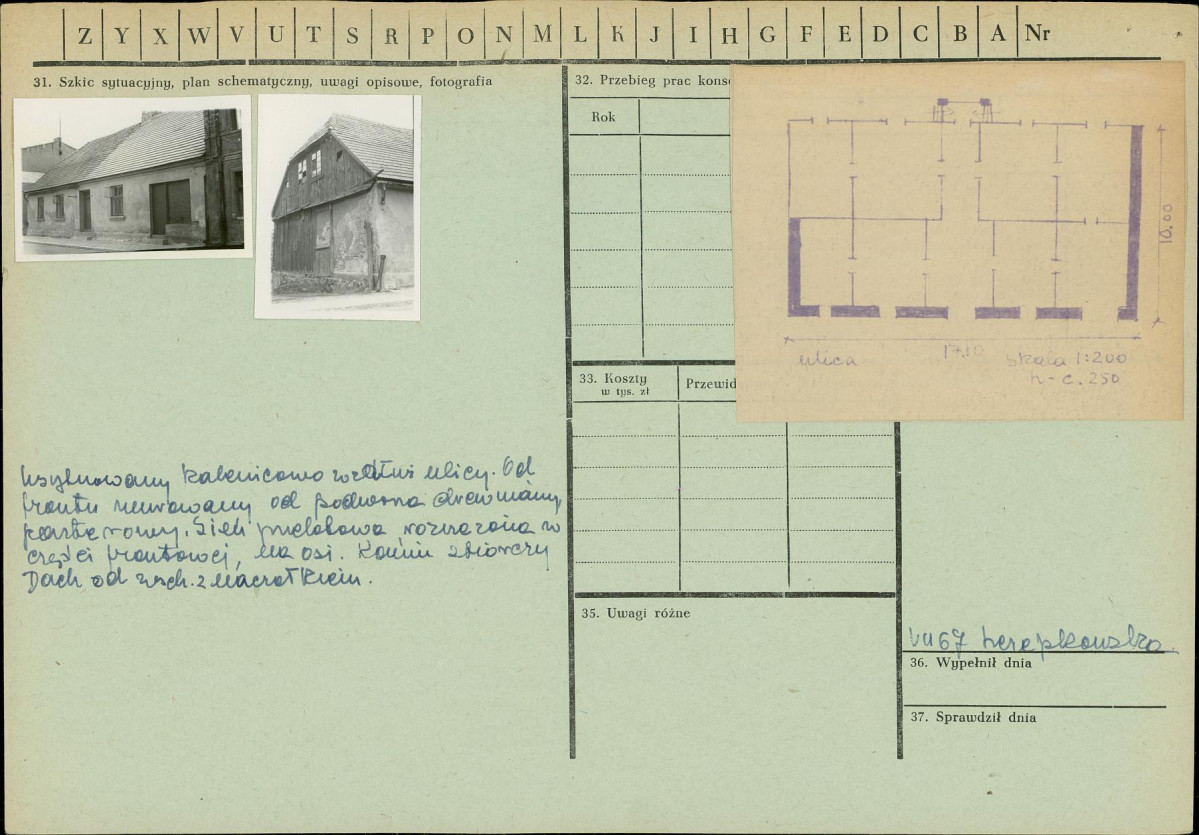 Z Y X W V U T S R P O N M L K J I H G F E D C B A Nr
31. Szkic sytuacyjny, plan schematyczny, uwagi opisowe, fotografia
Usytuowany kalenicowo wzdłuż ulicy. Od
frontu murowany od podwórza drewniany,
parterowy. Sień przelotowa, rozszerzona w
części frontowej, na osi. Komin zbiorczy
Dach od wsch. z naczółkiem.
32. Przebieg prac kons
Rok
33. Koszty
w tys. zł
Przewid
35. Uwagi różne
10.00
17.10
ulica
skala 1:200
h - c. 250
VII 67
36. Wypełnił dnia
37. Sprawdził dnia